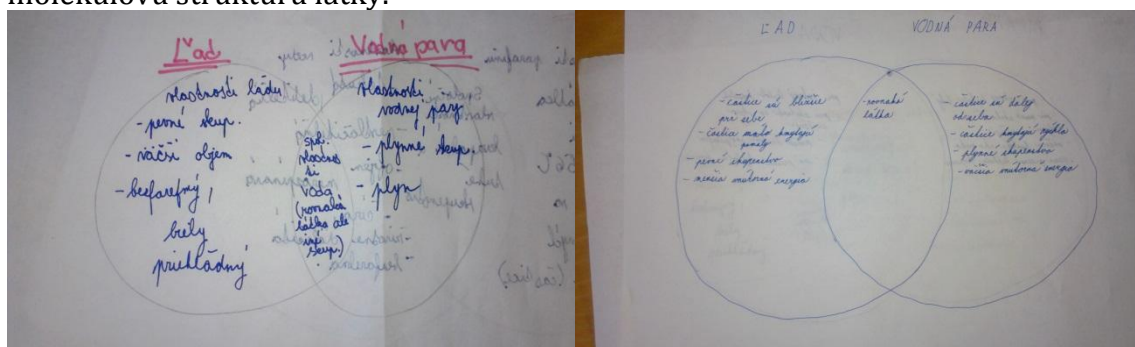 molekulovú štruktúru látky.
Ľad
Vodná para
vlastnosti ľadu
- pevné skup.
- väčší objem
- bezfarebný,
biely
priehľadný
spol.
vlastnos
ti
voda
(rovnaká
látka ale
iné
skup.)
vlastnosti
vodnej pary
- plynné skup.
- plyn
ĽAD
VODNÁ PARA
- častice sú bližšie
pri sebe
- častice majú
pomaly
- pevné skupenstvo
- menšia vnútorná energia
- rovnaká
látka
- častice sú ďalej
od seba
- častice kmitajú rýchlo
- plynné skupenstvo
- väčšia vnútorná energia